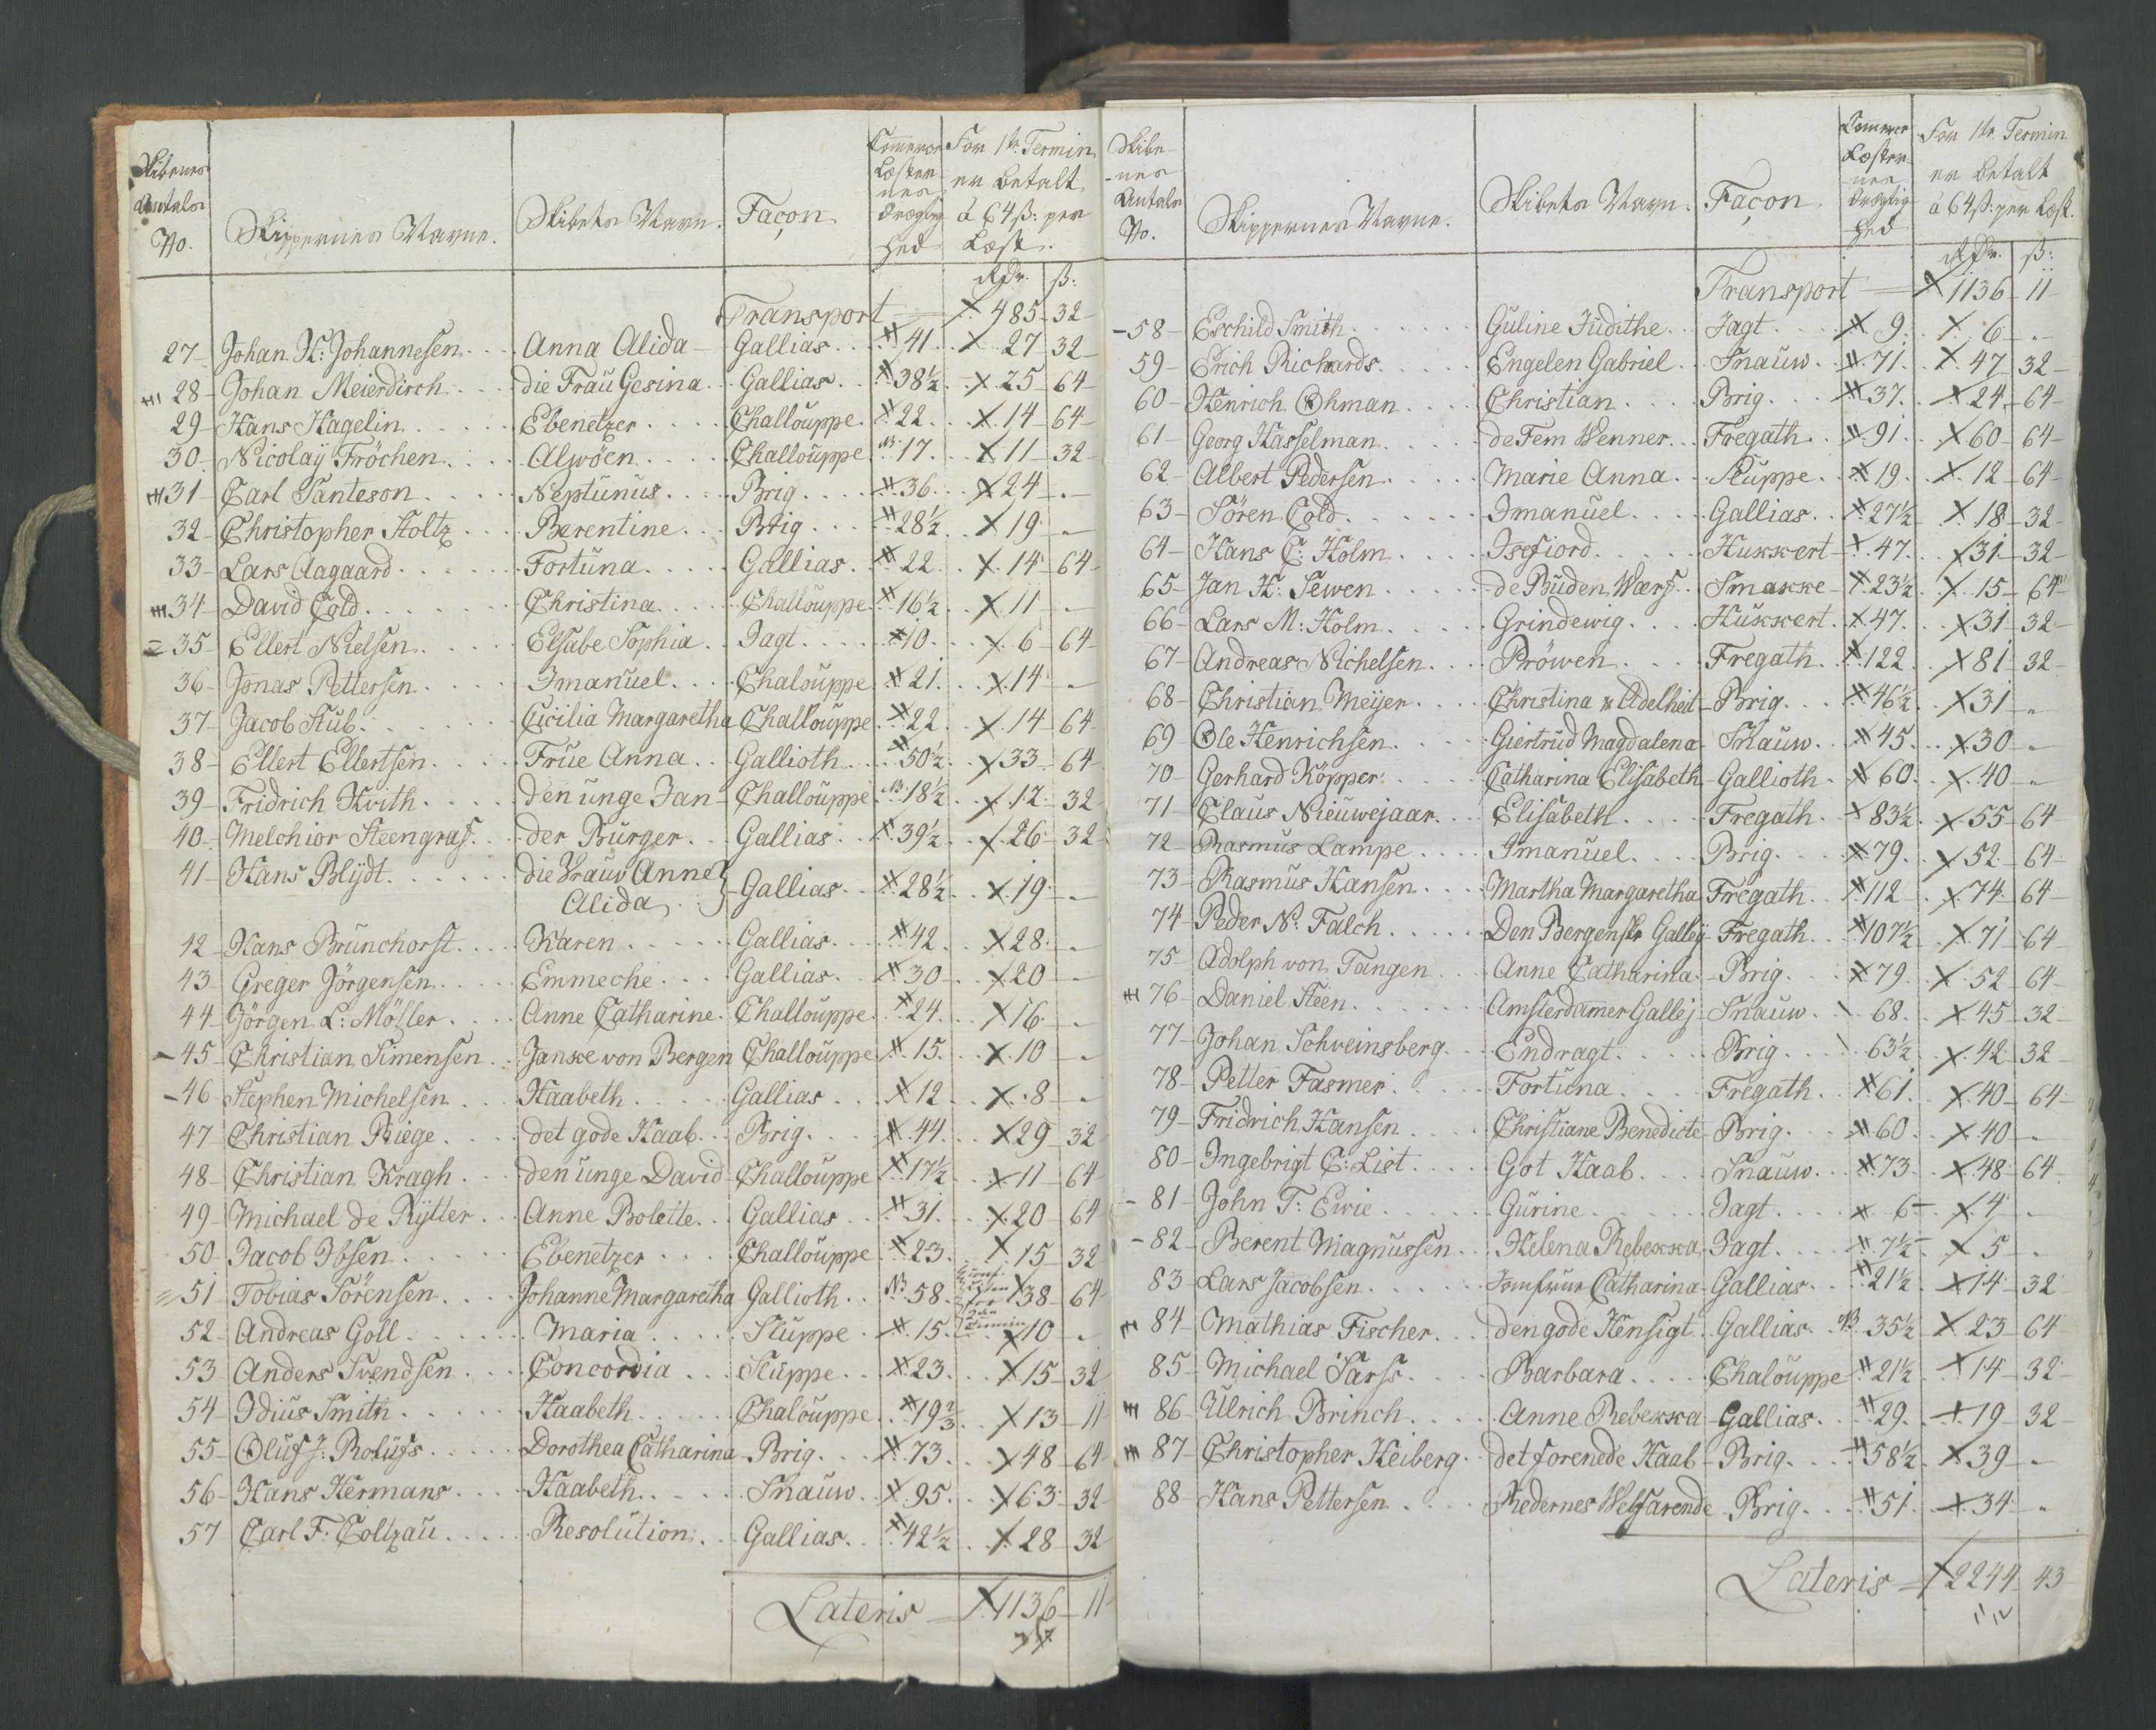 Skibenes Antals No. Skippernes Navne. Skibets Navn. Façon Commerce Læsternes Drægtighed For 1ste Termin er betalt à 64 ß: per Læst.
Rdr. ß:
Transport 485 32
27 Johan H: Johannesen Anna Alida Gallias 41 27 32
28 Johan Meierdirch die Frau Gesina Gallias 38½ 25 64
29 Hans Hagelin Ebenetzer Challouppe 22 14 64
30 Nicolaÿ Fröchen Alwöen Challouppe 17 11 32
31 Carl Santeson Neptunus Brig 36 24 -
32 Christopher Stoltz Berentine Brig 28½ 19 -
33 Lars Aagaard Fortuna Gallias 22 14 64
34 David Cold Christina Challouppe 16½ 11 -
35 Ellert Nielsen Elsabe Sophia Jagt 10 6 64
36 Jonas Pettersen Imanuel Chalouppe 21 14 -
37 Jacob Stub Cicilia Margaretha Challouppe 22 14 64
38 Ellert Ellertsen Frue Anna Gallioth 50½ 33 64
39 Fridrich Kvith den unge Jan Challouppe 18½ 12 32
40 Melchior Steengraf der Burger Gallias 39½ 26 32
41 Hans Blÿdt die Vrauw Anne
Alida Gallias 28½ 19 -
42 Hans Brunchorst Karen Gallias 42 28 -
43 Greger Jörgensen Emmeche Gallias 30 20 -
44 Jörgen L: Möller Anne Catharine Challouppe 24 16 -
45 Christian Simensen Janske von Bergen Challouppe 15 10 -
46 Stephen Michelsen Haabeth Gallias 12 8 -
47 Christian Riege det gode Haab Brig 44 29 32
48 Christian Kragh den unge David Challouppe 17½ 11 64
49 Michael de Rÿtter Anne Bolette Gallias 31 20 64
50 Jacob Ibsen Ebenetzer Challouppe 23 15 32
51 Tobias Sörensen Johanne Margaretha Gallioth NB 58 38 64
52 Andreas Goll Maria Sluppe 15 10 -
53 Anders Svendsen Concordia Sluppe 23 15 32
54 Idius Smith Haabeth Chalouppe 19⅔ 13 11
55 Oluf J: Rolufs Dorothea Catharina Brig 73 48 64
56 Hans Hermans Haabeth Snauw 95 63 32
57 Carl F: Coltzau Resolution Gallias 42½ 28 32
Lateris 1136 11
Skibenes Antals No. Skippernes Navne. Skibets Navn. Façon Commerce Læsternes Drægtighed For 1ste Termin er betalt à 64 ß: per Læst.
Rdr. ß:
Transport 1136 11
58 Eschild Smith Guline Judithe Jagt 9 6 -
59 Erich Richards Engelen Gabriel Snauw 71 47 32
60 Henrich Öhman Christian Brig 37 24 64
61 Georg Hasselman de Fem Wenner Fregath 91 60 64
62 Albert Pedersen Marie Anna Sluppe 19 12 64
63 Sören Cold Imanuel Gallias 27½ 18 32
64 Hans C: Holm Isefiord Hukkert 47 31 32
65 Jan H: Sewen de Buden Wærf Smakke 23½ 15 64
66 Lars M: Holm Grindewig Hukkert 47 31 32
67 Andreas Nichelsen Pröwen Fregath 122 81 32
68 Christian Meijer Christina & Adelheit Brig 46½ 31 -
69 Ole Henrichsen Giertrud Magdalena Snauw 45 30 -
70 Gerhard Köpper Catharina Elisabeth Gallioth 60 40 -
71 Claus Nieuwejaar Elisabeth Fregath 83½ 55 64
72 Rasmus Lampe Imanuel Brig 79 52 64
73 Rasmus Hansen Martha Margaretha Fregath 112 74 64
74 Peder N: Falch Den Bergenske Galleÿ Fregath 107½ 71 64
75 Adolph von Tangen Anne Catharina Brig 79 52 64
76 Daniel Steen Amsterdammer Gallej Snauw 68 45 32
77 Johan Schveinsberg Endragt Brig 63½ 42 32
78 Petter Fasmer Fortuna Fregath 61 40 64
79 Fridrich Hansen Christiane Benedicte Brig 60 40 -
80 Ingebrigt C: List Got Haab Snauw 73 48 64
81 John T: Ewie Gurine Jagt 6 4 -
82 Berent Magnussen Helena Rebekka Jagt 7½ 5 -
83 Lars Jacobsen Jomfrue Catharina Gallias 21½ 14 32
84 Mathias Fischer den gode Hensigt Gallias NB 35½ 23 64
85 Michael Sars Barbara Chalouppe 21½ 14 32
86 Ulrich Brinch Anne Rebekka Gallias 29 19 32
87 Christopher Heiberg det forenede Haab Brig 58½ 39 -
88 Hans Pettersen Redernes Welfarende Brig 51 34 -
Lateris 2244 43